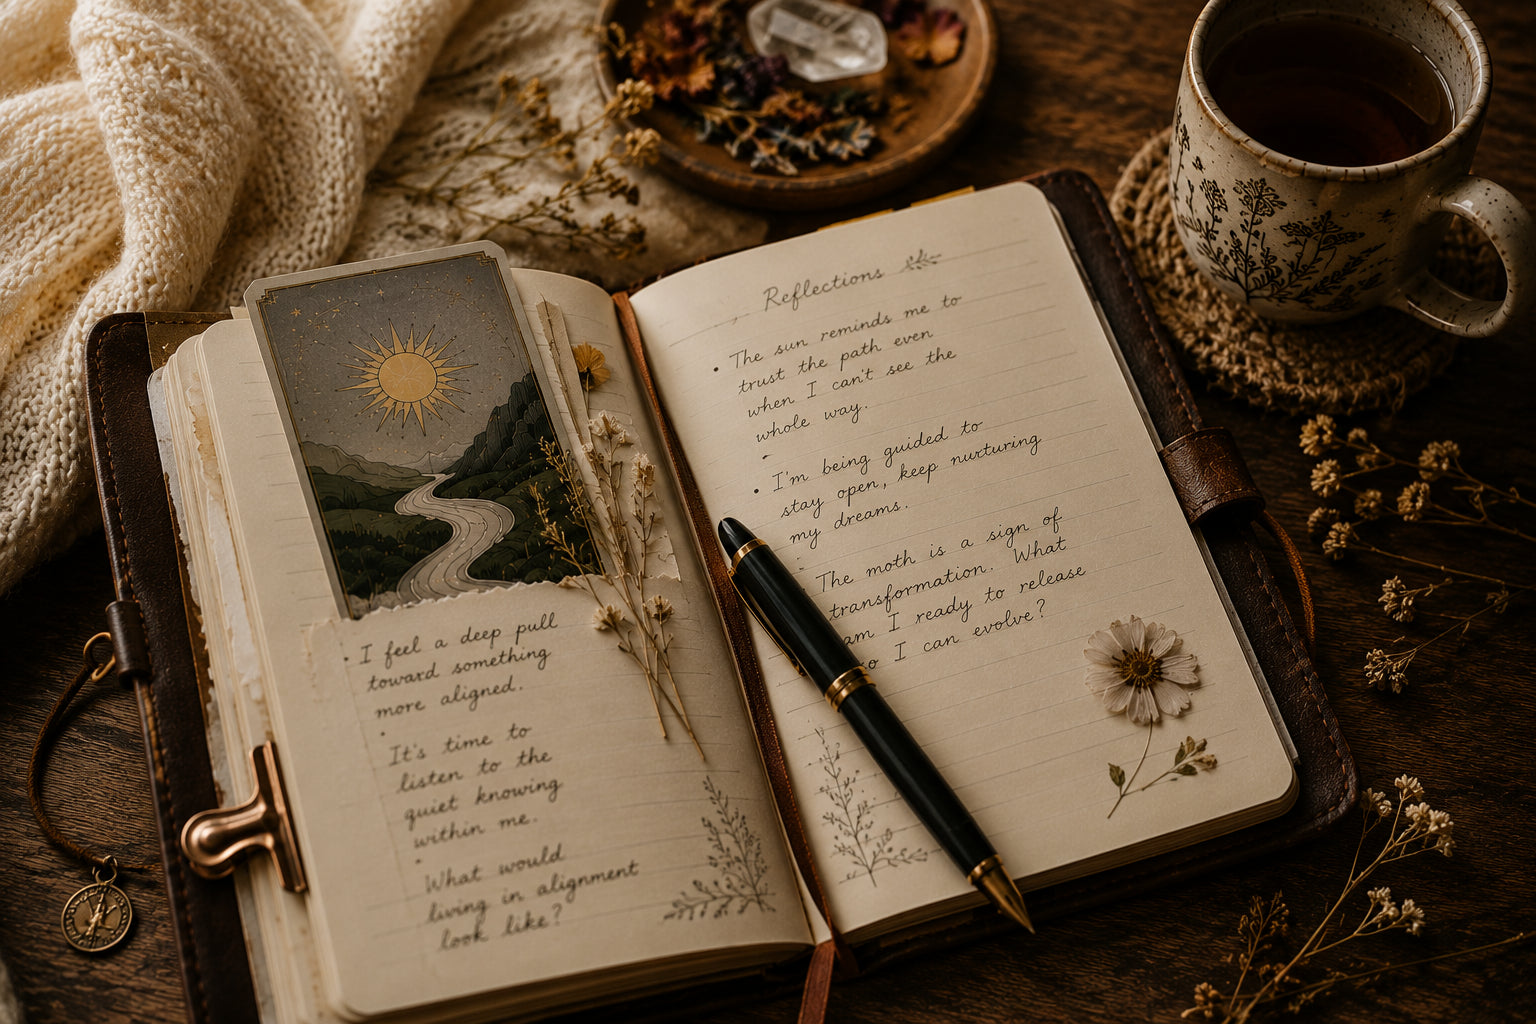 I feel a deep pull
toward something
more aligned.
It's time to
listen to the
quiet knowing
within me.
What would
living in alignment
look like?
Reflections
The sun reminds me to
trust the path even
when I can't see the
whole way.
I'm being guided to
stay open, keep nurturing
my dreams.
The moth is a sign of
transformation. What
am I ready to release
I can evolve?